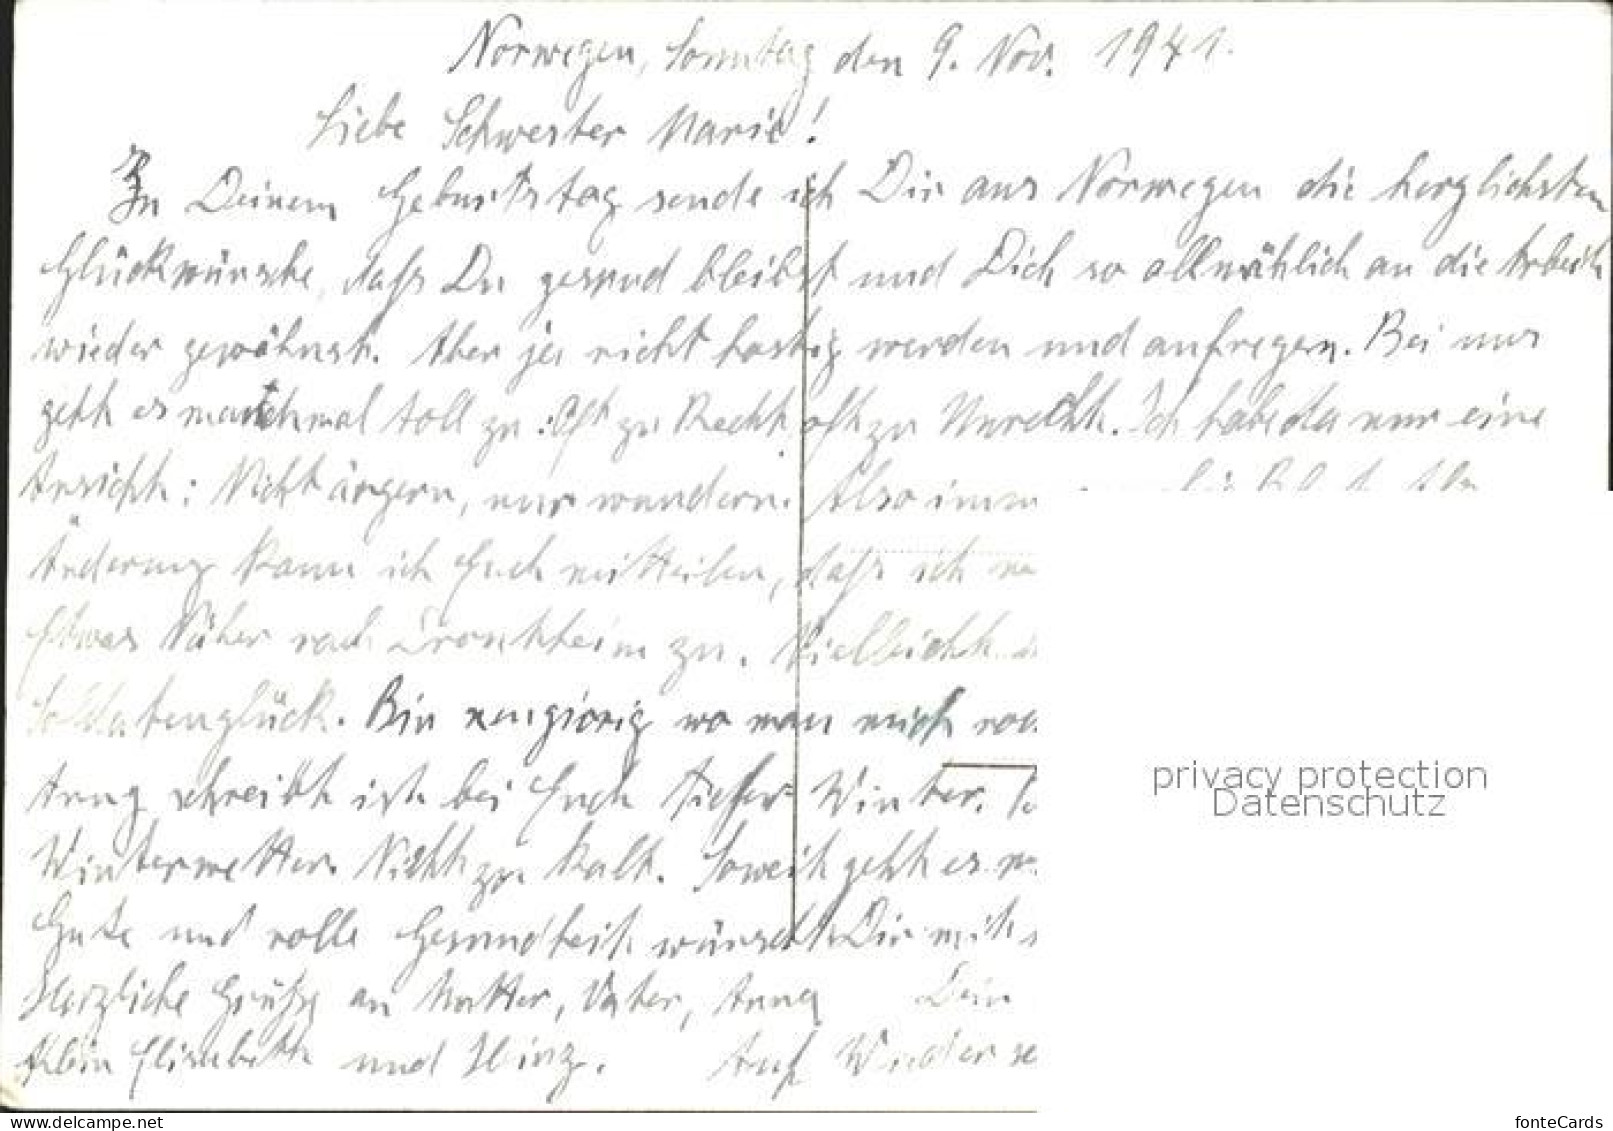 Norwegen, Sonntag den 9. Nov. 1941.
Liebe Schwester Marie!
Zu Deinem Geburtstag sende ich Dir aus Norwegen die herzlichsten
Glückwünsche, daß Du gesund bleibst und Dich so allmählich an die Arbeit
wieder gewöhnst. Aber ja nicht hastig werden und aufregen. Bei uns
geht es manchmal toll zu. Oft zu Recht, oft zu Unrecht. Ich habe da nur eine
Ansicht: Nicht ärgern, nur wundern. Also imm
Änderung kann ich Euch mitteilen, daß ich
Etwas Näher nach Drontheim zu. Vielleicht
Soldatenglück. Bin neugierig wo man mich noc
Anna schreibt ist bei Euch tiefer Winter.
Winterwetter. Nicht zu kalt. Soweit geht es
Gute und volle Gesundheit wünscht Dir mit
Herzliche Grüße an Mutter, Vater, Anna Dein
Klein Elisabeth und Heinz. Auf Wiederse
privacy protection
Datenschutz
www.delcampe.net
fonteCards